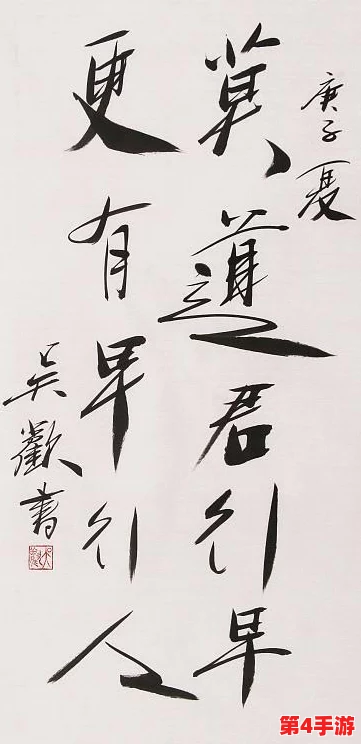 庚子夏
莫道君行早
更有早行人
吴歡書
第4手游